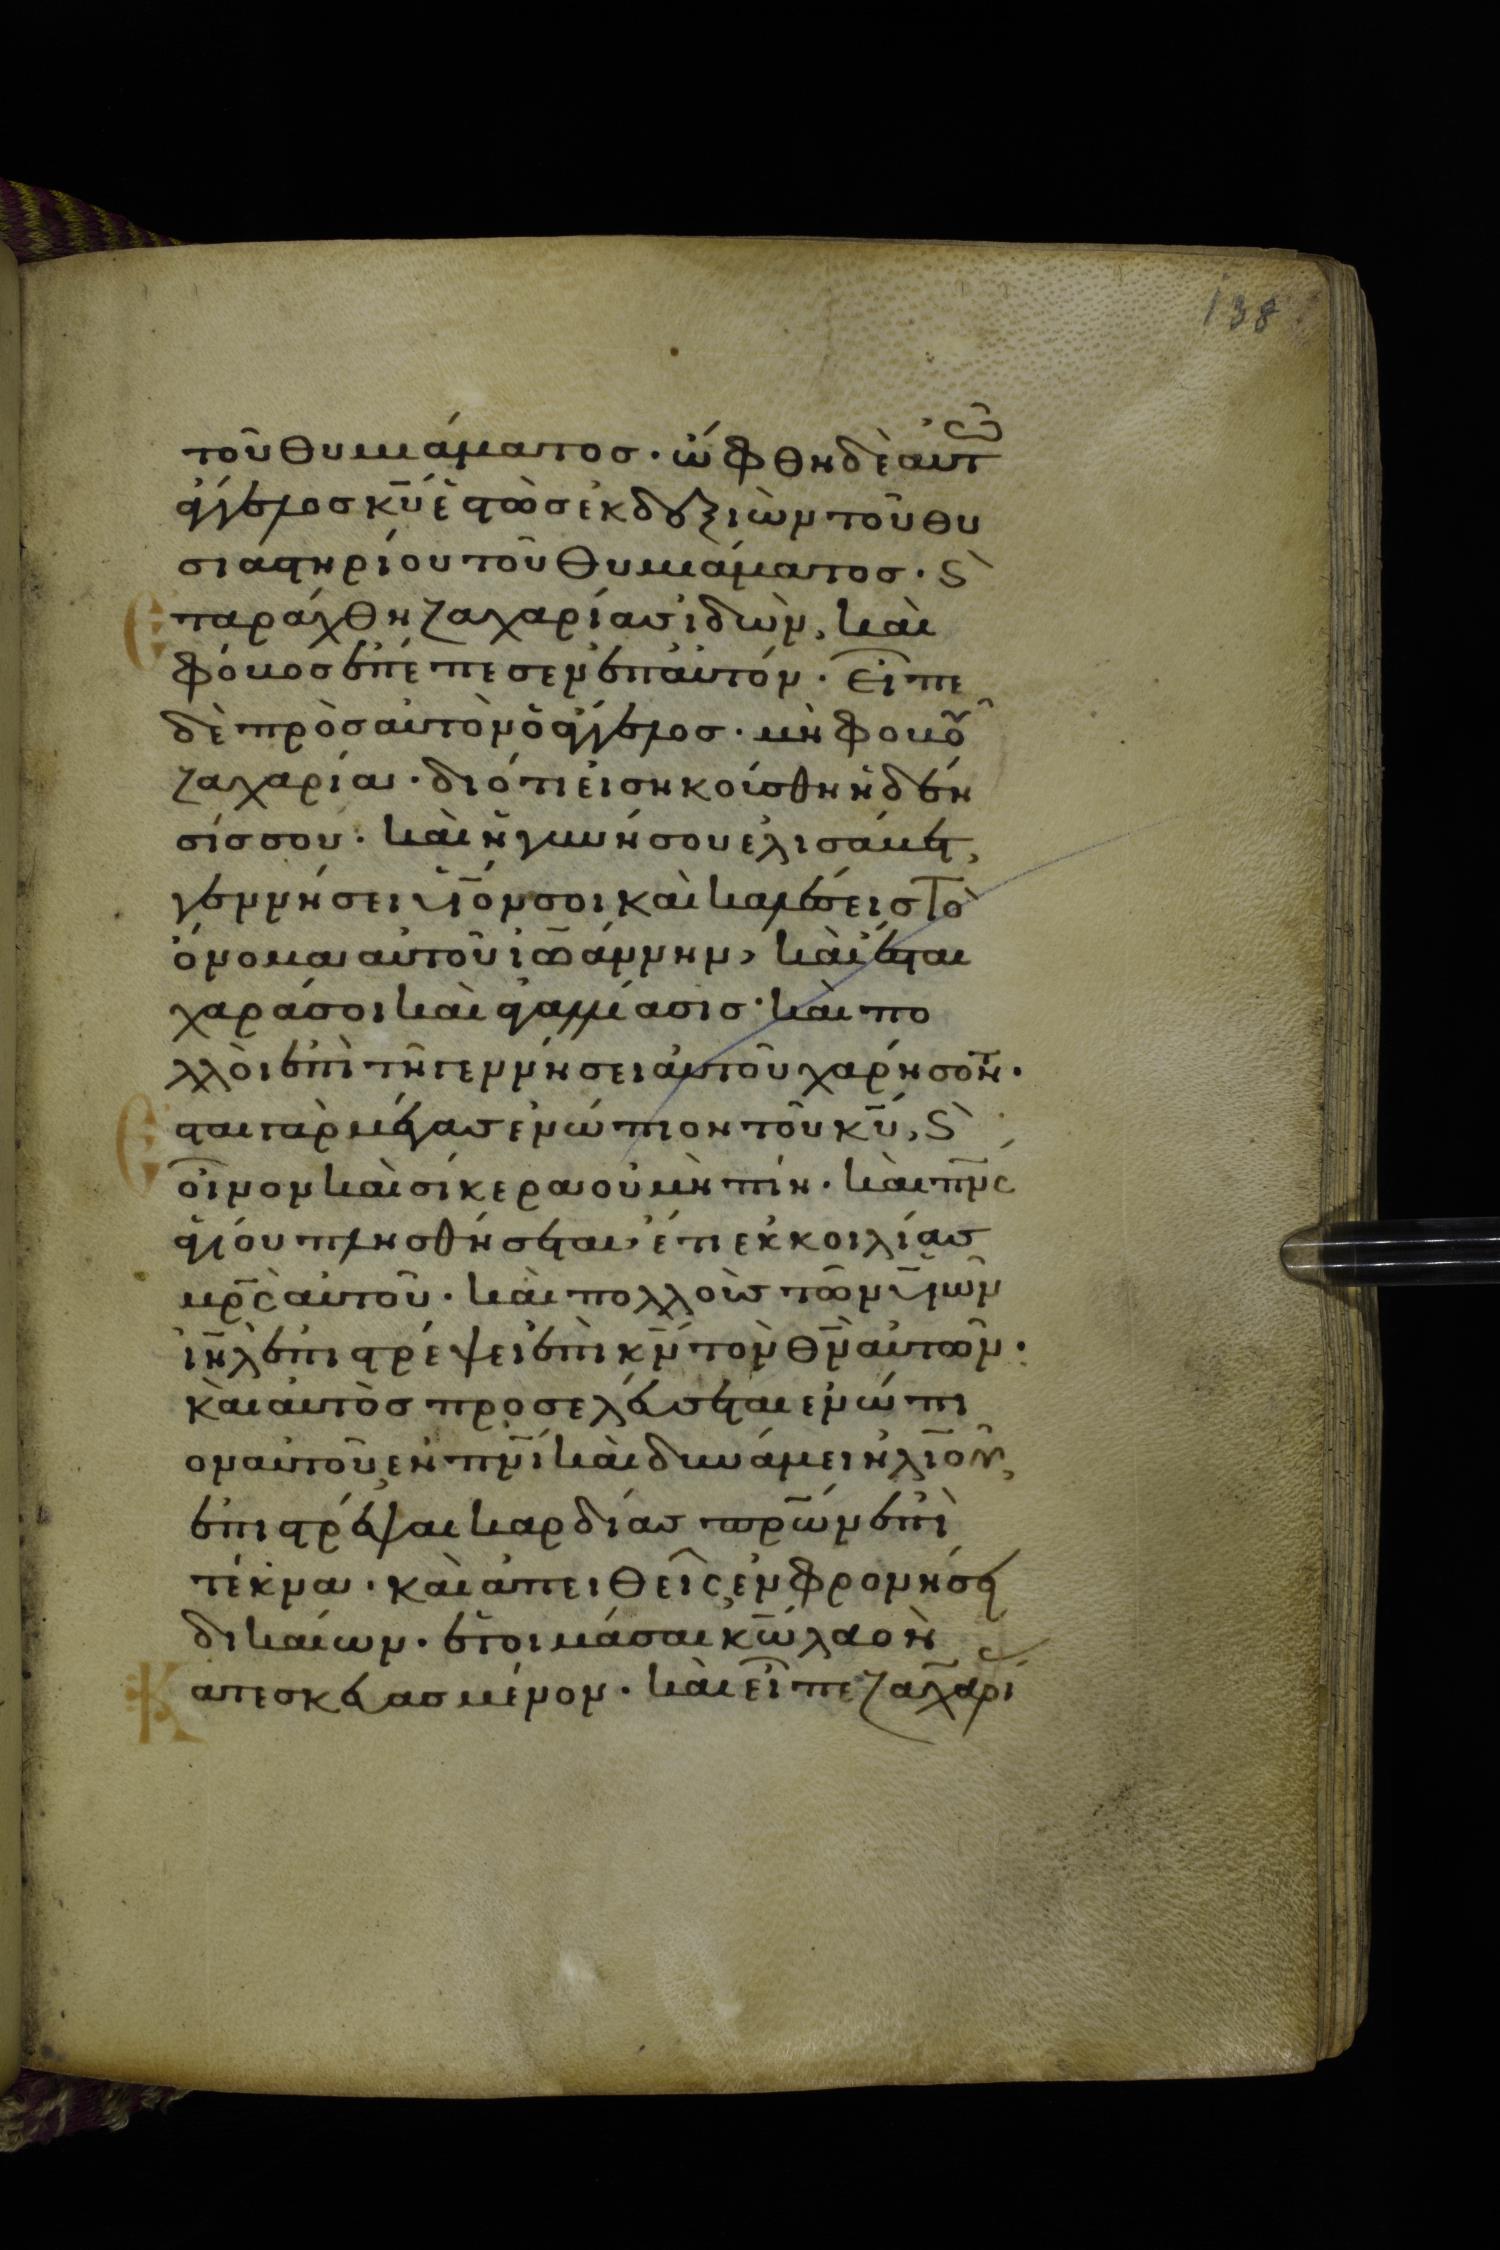 138
τοῦ θυμιάματος· ὤφθη δὲ αὐτῶ
ἄγγελος κ̅υ̅ ἑστὼς ἐκ δεξιῶν τοῦ θυ
σιαστηρίου τοῦ θυμιάματος· ϛ̀
ἐταράχθη ζαχαρίας ἰδὼν, καὶ
φόβος ἐπέπεσεν ἐπ αὐτόν· εἶπε
δὲ πρὸς αὐτὸν ὁ ἄγγελος· μὴ φοβοῦ
ζαχαρία· διότι εἰσηκούσθη ἡ δέη
σίς σου· καὶ ἡ γυνή σου ἐλισάβετ,
γεννήσει υἱ̅όν σοι καὶ καλέσεις τὸ
ὄνομα αὐτοῦ ἰωάννην, καὶ ἔσται
χαρά σοι καὶ ἀγαλλίασις· καὶ πο
λλοὶ ἐπὶ τῆ γεννήσει αὐτοῦ χαρήσον̅·
Ἔσται γὰρ μέγας ἐνώπιον τοῦ κ̅υ̅, ϛ̀
οἶνον καὶ σίκερα οὐ μὴ πίη· καὶ π̅ν̅ς
ἁγίου πλησθήσεται ἔτι ἐκ κοιλίας
μ̅ρ̅ς αὐτοῦ· καὶ πολλοὺς τῶν υἱ̅ῶν
ἰ̅η̅λ̅ ἐπιστρέψει ἐπὶ κ̅ν̅ τὸν θ̅ν̅ αὐτῶν·
καὶ αὐτὸς προσελεύσεται ἐνώπι
ον αὐτοῦ ἐν π̅ν̅ι καὶ δυνάμει ἠλιοῦ,
ἐπιστρέψαι καρδίας π̅ρ̅ω̅ν ἐπὶ
τέκνα· καὶ ἀπειθεῖς, ἐν φρονήσει
δικαίων· ἑτοιμάσαι κ̅ω̅ λαὸν
κατεσκευασμένον· καὶ εἶπε ζαχαρί